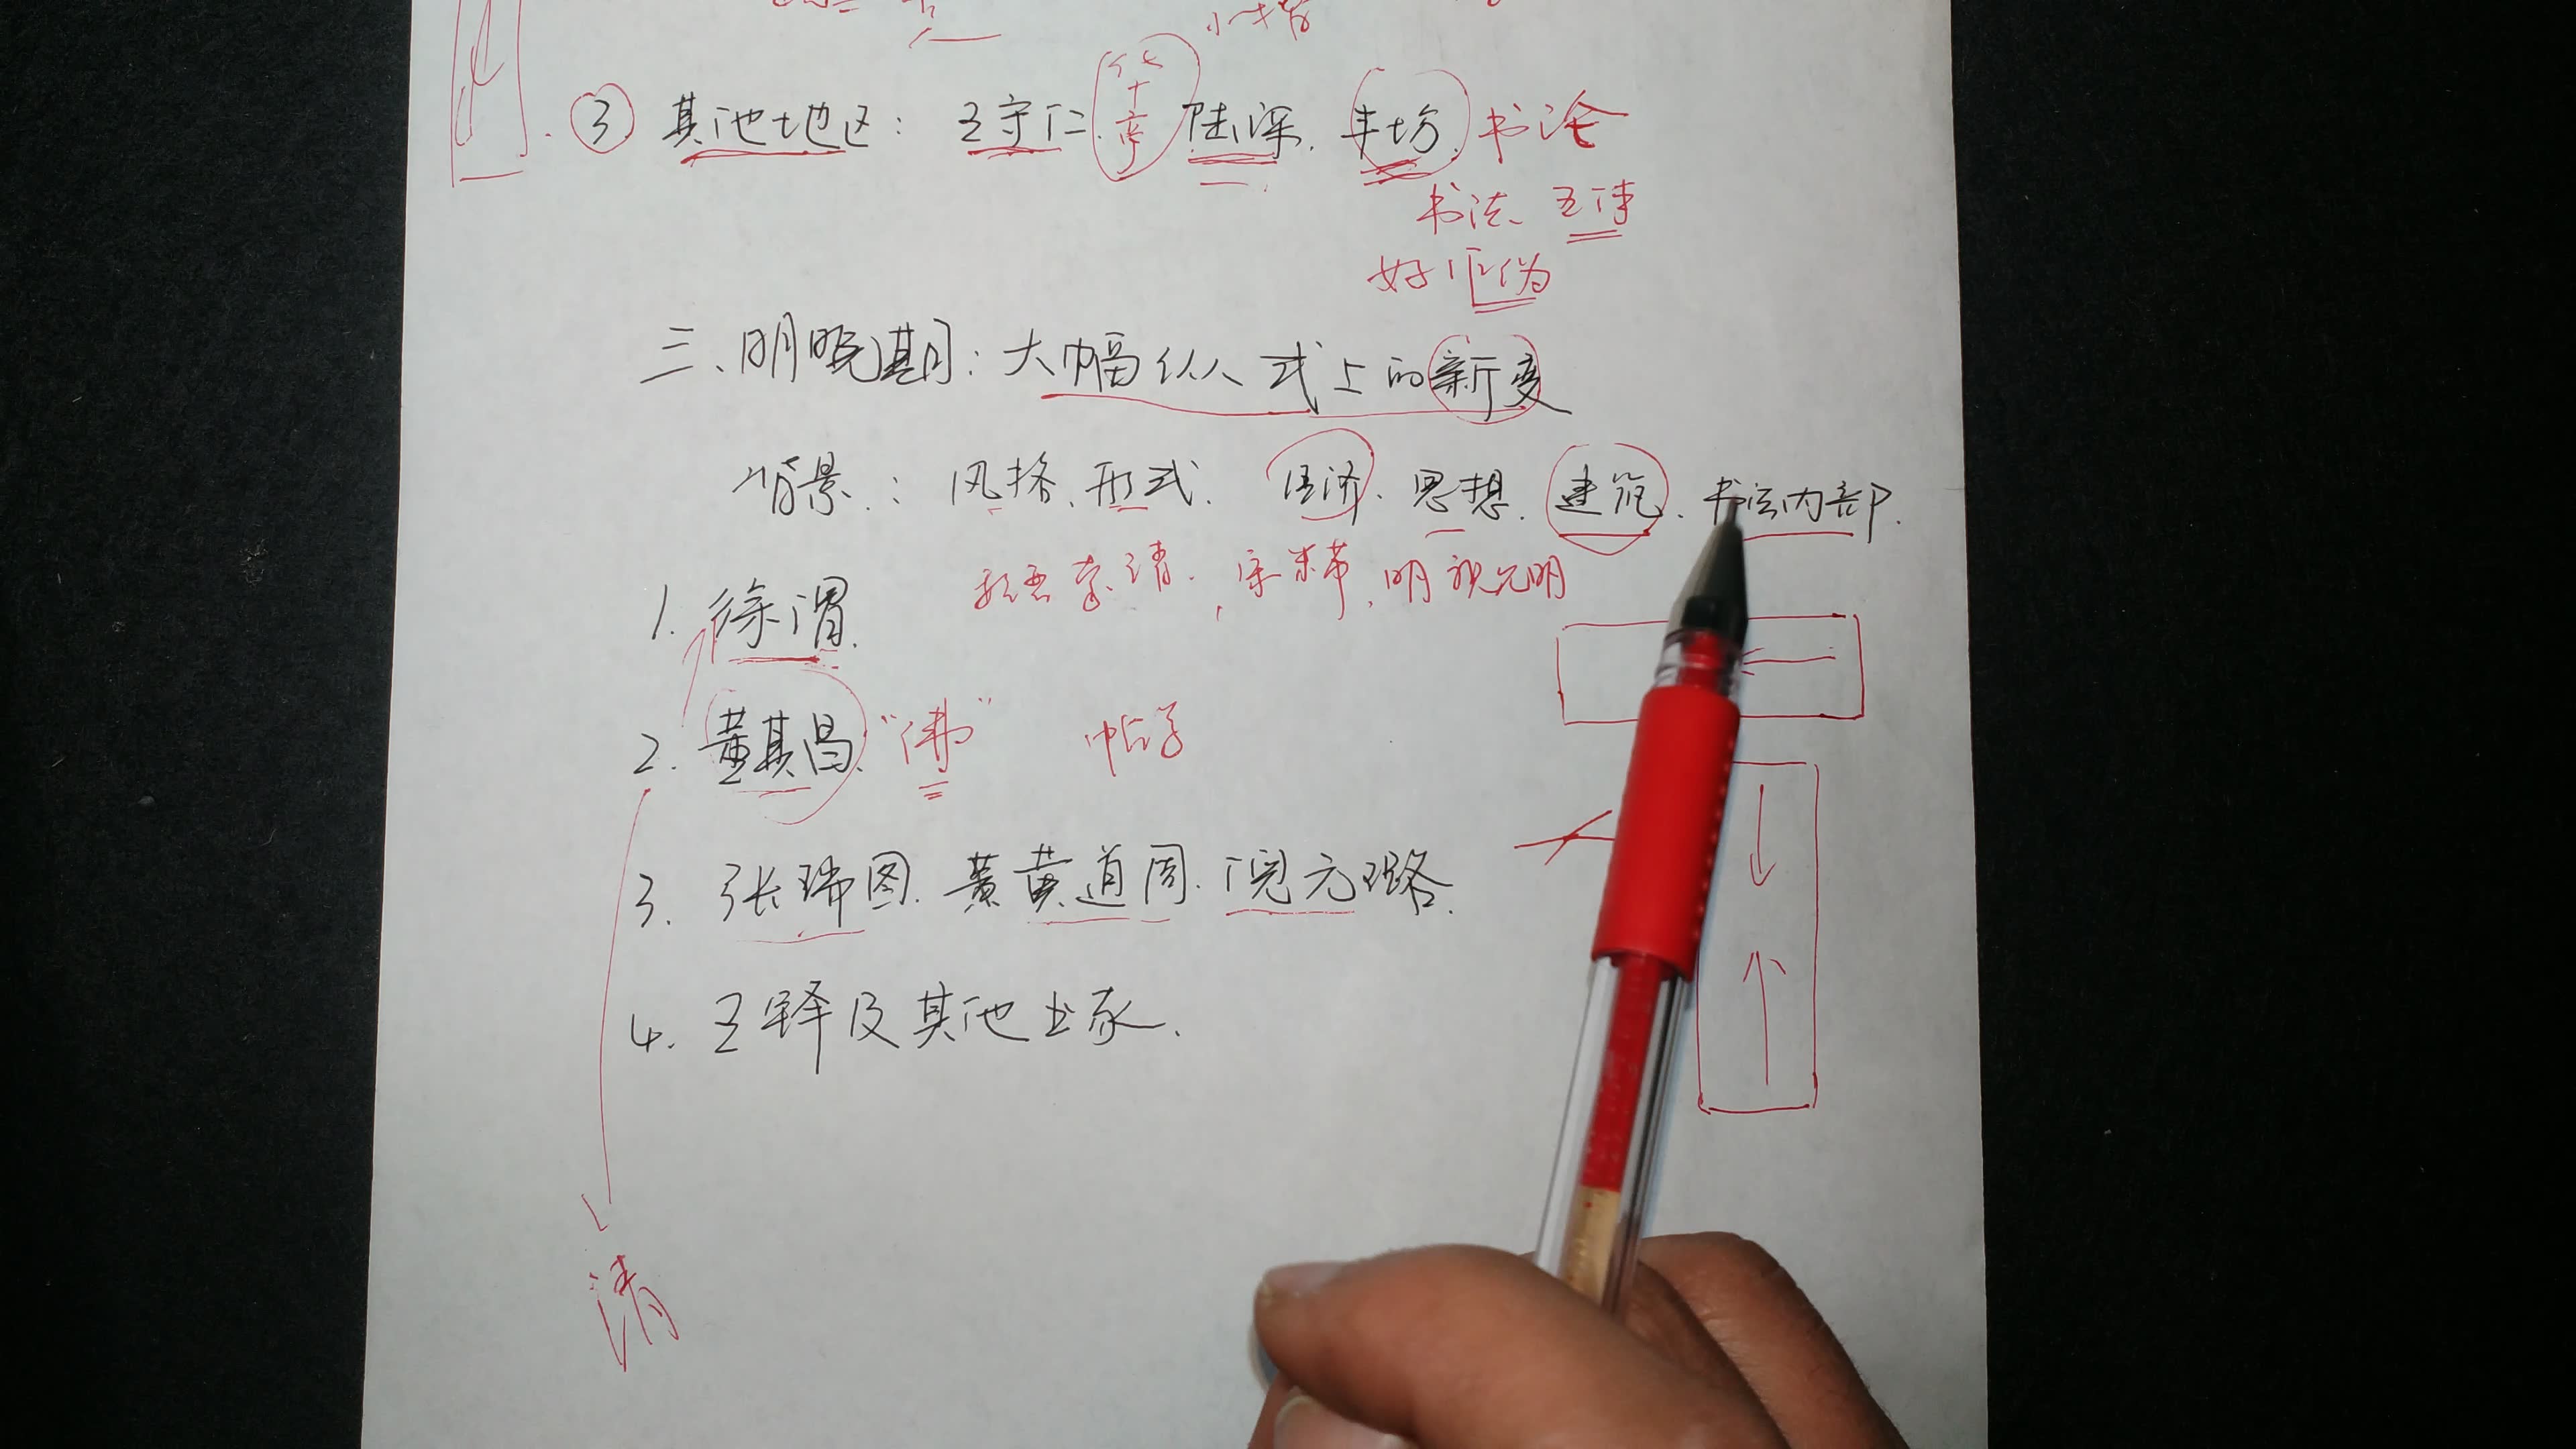 ③ 其他地区：王守仁、华亭 陆深、丰坊、书论
书法、五体
好作伪
三、明晚期：大幅纵式上的新变
背景：风格、形式、经济、思想、建筑、书法内部.
李清, 宋米芾, 明祝允明
1. 徐渭.
2. 董其昌. “佛” 帖学
3. 张瑞图. 黄道周. 倪元璐.
4. 王铎及其他书家.
清